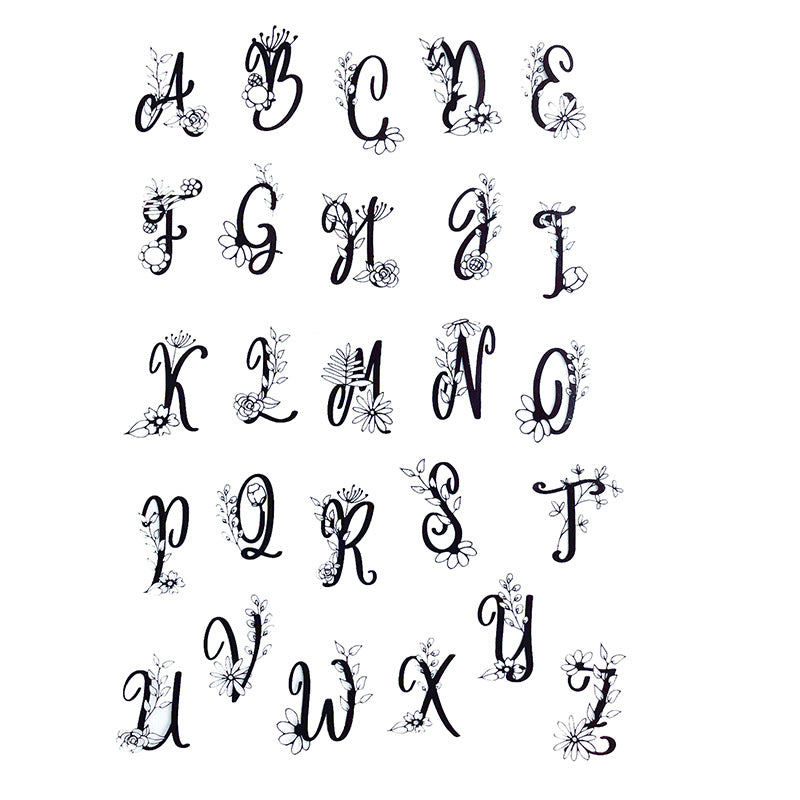 A B C D E
F G H J I
K L M N O
P Q R S T
U V W X Y Z